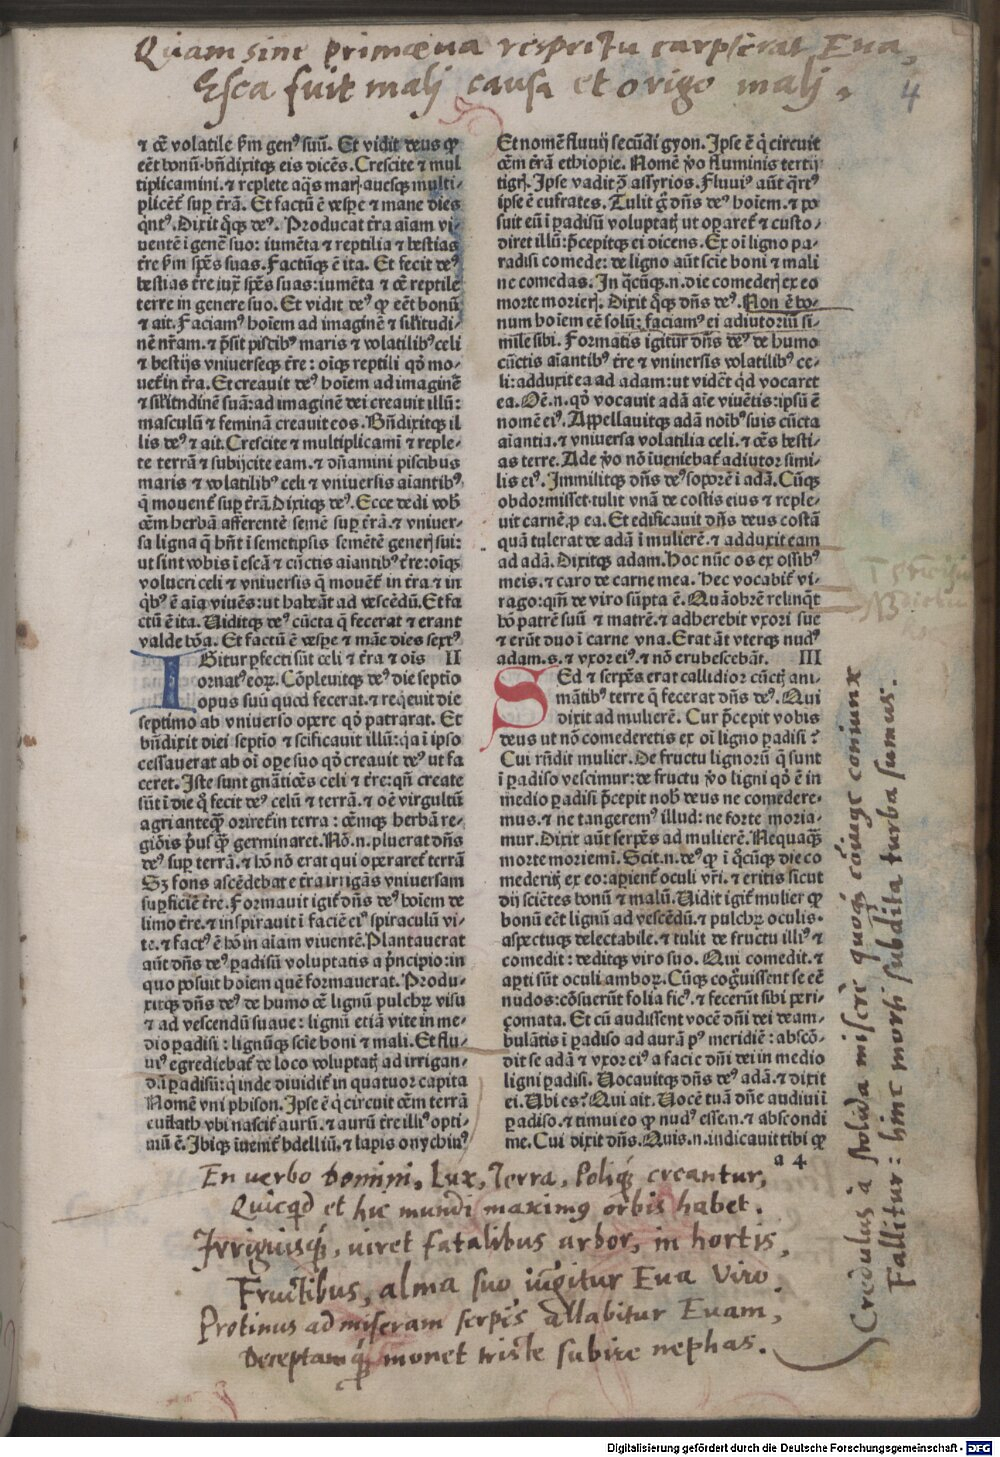 Quam sine primæua respectu carpserat Eua,
Esca fuit malj causa et origo malj.
4
⁊ cē volatile ẜm genꝰ suū. Et vidit deus ꝙ
eēt bonū. bn̄dixitqꝫ eis dicēs. Crescite ⁊ mul
tiplicamini. ⁊ replete aq̄s marꝭ auesqꝫ multi-
plicēt᷑ sup̱ tr̄ā. Et factū ē vesp̱e ⁊ mane dies
q̄ntꝰ. Dixit q̄qꝫ deꝰ. Producat tr̄a aīam vi-
ventē ī genē suo: iumēta ⁊ reptilia ⁊ bestias
tr̄e ẜm sp̄es suas. Factūqꝫ ē ita. Et fecit deꝰ
bestias tr̄e iux̄ sp̄es suas: iumēta ⁊ cē reptile
terre in genere suo. Et vidit deꝰ ꝙ eēt bonū
⁊ ait. Faciamꝰ hoīem ad imaginē ⁊ sil̄itudi-
nē nr̄am. ⁊ p̄sit piscibꝰ maris ⁊ volatilibꝰ celi
⁊ bestijs vniuerseqꝫ tr̄e: oīqꝫ reptili qd̄ mo-
uet᷑ in tr̄a. Et creauit deꝰ hoīem ad imaginē
⁊ sil̄itudinē suā: ad imaginē dei creauit illū:
masculū ⁊ feminā creauit eos. Bn̄dixitqꝫ il
lis deꝰ ⁊ ait. Crescite ⁊ multiplicamī ⁊ reple-
te terrā ⁊ subijcite eam. ⁊ dn̄amini piscibus
maris ⁊ volatilibꝰ celi ⁊ vniversis aīantibꝰ
q̄ mouent᷑ sup̱ tr̄ā. Dixitqꝫ deꝰ. Ecce dedi vob̄
oēm herbā afferentē semē sup̱ tr̄ā. ⁊ vniuer-
sa ligna q̄ hn̄t ī semetipsis semētē generꝭ sui:
ut sint vobis ī escā ⁊ cūctis aīantibꝰ tr̄e: oīqꝫ
volucri celi ⁊ vniversis q̄ mouēt᷑ in tr̄a ⁊ in
q̄bꝰ ē aīa viuēs: ut habeāt ad vescēdū. Et fa
ctū ē ita. Uiditqꝫ deꝰ cūcta q̄ fecerat ⁊ erant
valde bōa. Et factū ē vesp̱e ⁊ māe dies sextꝰ
IGitur p̱fecti sūt celi ⁊ tr̄a ⁊ oīs II
ornatꝰ eoꝝ. Cōpleuitqꝫ deꝰ die septīo
opus suū quod fecerat. ⁊ reqͥeuit die
septimo ab vniuerso opere qd̄ patrarat. Et
bn̄dixit diei septīo ⁊ sc̄ificauit illū: qͥa ī ipso
cessauerat ab oī ope suo qd̄ creauit deꝰ ut fa
ceret. Iste sunt gnātiōēs celi ⁊ tr̄e: qn̄ create
sūt ī die q̄ fecit deꝰ celū ⁊ terrā. ⁊ oē virgultū
agri anteqꝫ oriret᷑ in terra: oēmqꝫ herbā re-
giōis pͥusqꝫ germinaret. Nō. n. pluerat dn̄s
deꝰ sup̱ terrā. ⁊ hō nō erat qui operaret᷑ terrā
Sꝫ fons ascēdebat e tr̄a irrigās vniversam
sup̱ficiē tr̄e. Formauit igit᷑ dn̄s deꝰ hoīem de
limo tr̄e. ⁊ inspirauit ī faciē eiꝰ spiraculū vi-
te. ⁊ factꝰ ē hō in aīam viventē. Plantauerat
aūt dn̄s deꝰ ꝑadisū voluptatis a pͥncipio: in
quo posuit hoīem quē formauerat. Produ-
xitqꝫ dn̄s deꝰ de humo oē lignū pulchꝝ visu
⁊ ad vescendū suaue: lignū etiā vite in me-
dio ꝑadisi: lignūqꝫ scīe boni ⁊ mali. Et flu-
uiꝰ egrediebat᷑ de loco voluptatꝭ ad irrigan-
dū ꝑadisū: qͥ inde diuidit᷑ in quatuor capita
Nomē vni phison. Ipse ē qͥ circuit oēm terrā
euilath vbi nascit᷑ aurū. ⁊ aurū tr̄e illiꝰ opti-
mū ē. Ibiqꝫ īuenit᷑ bdelliū. ⁊ lapis onychinꝰ
Et nomē fluuij secūdi gyon. Ipse ē qͥ circuit
oēm tr̄ā ethiopie. Nomē v̊o fluminis tertij
tigrꝭ. Ipse vadit ꝯ̄ assyrios. Fluuiꝰ aūt qͣrtꝰ
ipse ē eufrates. Tulit gͦ dn̄s deꝰ hoīem. ⁊ po
suit eū ī ꝑadisū voluptatꝭ ut oꝑaret᷑ ⁊ custo-
diret illū: p̄cepitqꝫ ei dicens. Ex oī ligno pa-
radisi comede: de ligno aūt scīe boni ⁊ mali
ne comedas. In q̄cūqꝫ. n. die comederꝭ ex eo
morte morierꝭ. Dixit q̄qꝫ dn̄s deꝰ. Non ē bo-
num hoīem eē solū: faciamꝰ ei adiutoriū si-
mile sibi. Formatis igitur dn̄s deꝰ de humo
cūctis aīantibꝰ tr̄e ⁊ vniuersis volatilibꝰ ce-
li: adduxit ea ad adam: ut vidēt qͥd vocaret
ea. Oē. n. qd̄ vocauit adā aīe viuētis: ipsū ē
nomē eiꝰ. Appellauitqꝫ adā noībꝰ suis cūcta
aīantia. ⁊ vniversa volatilia celi. ⁊ oēs besti-
as terre. Ade v̊o nō īueniebat᷑ adiutor simi-
lis eiꝰ. Immilitqꝫ dn̄s deꝰ soporē ī adā. Cūqꝫ
obdormisset. tulit vnā de costis eius ⁊ reple-
uit carnē ꝓ ea. Et edificauit dn̄s deus costā
quā tulerat de adā ī mulierē. ⁊ adduxit eam
ad adā. Dixitqꝫ adam. Hoc nūc os ex ossibꝰ
meis. ⁊ caro de carne mea. Hec vocabit᷑ vi-
rago: qm̄ de viro sūpta ē. Quāobrē relinqͥt
hō patrē suū ⁊ matrē. ⁊ adherebit vxori sue
⁊ erūt duo ī carne vna. Erat āt vterqꝫ nudꝰ
adam. s. ⁊ vxor eiꝰ. ⁊ nō erubescebāt. III
SEd ⁊ serpēs erat callidior cūctꝭ ani-
mātibꝰ terre q̄ fecerat dn̄s deꝰ. Qui
dixit ad mulierē. Cur p̄cepit vobis
deus ut nō comederetis ex oī ligno ꝑadisi?
Cui rn̄dit mulier. De fructu lignorū q̄ sunt
ī ꝑadiso vescimur: de fructu v̊o ligni qd̄ ē in
medio ꝑadisi p̄cepit nob̄ deus ne comedere-
mus. ⁊ ne tangeremꝰ illud: ne forte moria-
mur. Dixit aūt serpēs ad mulierē. Nequaqꝫ
morte moriemī. Scit. n. deꝰ ꝙ ī q̊cūqꝫ die co
mederitꝭ ex eo: aꝑient᷑ oculi vr̄i. ⁊ eritis sicut
dij sciētes bonū ⁊ malū. Uidit igit᷑ mulier ꝙ
bonū eēt lignū ad vescēdū. ⁊ pulchꝝ oculis.
aspectuqꝫ delectabile. ⁊ tulit de fructu illiꝰ ⁊
comedit: deditqꝫ viro suo. Qui comedit. ⁊
aꝑti sūt oculi amboꝝ. Cūqꝫ cog̊uissent se eē
nudos: cōsuerūt folia ficꝰ. ⁊ fecerūt sibi peri-
çomata. Et cū audissent vocē dn̄i dei deam-
bulātis ī ꝑadiso ad aurā pꝰ meridiē: abscō-
dit se adā ⁊ vxor eiꝰ a facie dn̄i dei in medio
ligni ꝑadisi. Uocauitqꝫ dn̄s deꝰ adā. ⁊ dixit
ei. Ubi es? Qui ait. Uocē tuā dn̄e audiui ī
ꝑadiso. ⁊ timui eo ꝙ nudꝰ essē. n. ⁊ abscondi
me. Cui dixit dn̄s. Quis. n. indicauit tibi ꝙ
a 4
En verbo Domini, Lux, Terra, Poliqꝫ creantur,
Quicqͥd et hic mundi maximꝰ orbis habet.
Irriguisqꝫ, viret fatalibus arbor, in hortis,
Fructibus, alma suo iūgitur Eua viro.
Protinus ad miseram serpēs allabitur Euam,
Deceptamqꝫ monet triste subire nephas.
Credulus à stolida miserè quoqꝫ cōiuge coniunx
Fallitur: hinc morti subdita turba sumus.
Digitalisierung gefördert durch die Deutsche Forschungsgemeinschaft - DFG